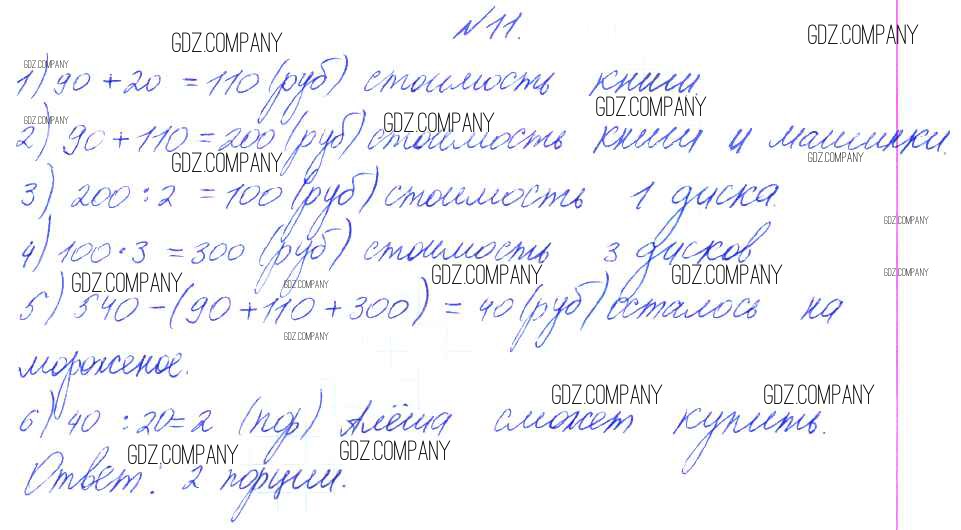 №11.
GDZ.COMPANY GDZ.COMPANY
GDZ.COMPANY
1) 90 + 20 = 110 (руб) стоимость книги.
GDZ.COMPANY
GDZ.COMPANY GDZ.COMPANY
2) 90 + 110 = 200 (руб) стоимость книги и машинки.
GDZ.COMPANY GDZ.COMPANY
3) 200 : 2 = 100 (руб) стоимость 1 диска.
GDZ.COMPANY
4) 100 · 3 = 300 (руб) стоимость 3 дисков
GDZ.COMPANY GDZ.COMPANY GDZ.COMPANY GDZ.COMPANY GDZ.COMPANY
5) 540 - (90 + 110 + 300) = 40 (руб) осталось на
GDZ.COMPANY
мороженое.
GDZ.COMPANY GDZ.COMPANY
6) 40 : 20 = 2 (пор) Алёша сможет купить.
GDZ.COMPANY GDZ.COMPANY
Ответ: 2 порции.